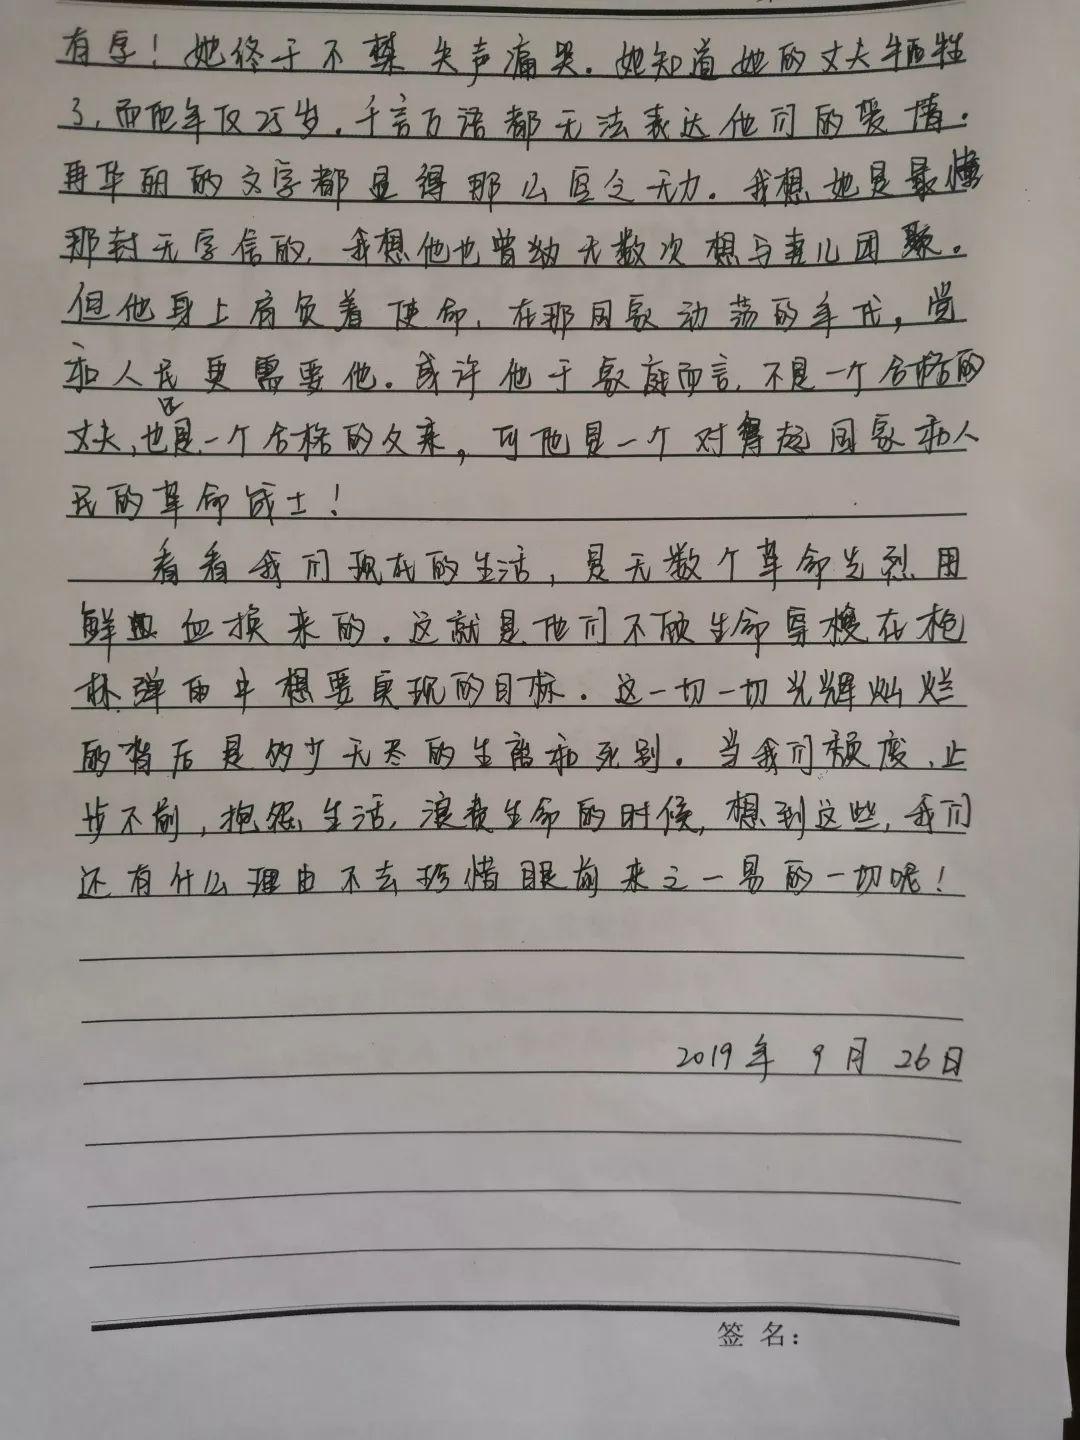 有字！她终于不禁失声痛哭。她知道她的丈夫牺牲
了，而他年仅25岁。千言万语都无法表达他们的爱情。
再华丽的文字都显得那么匮乏无力。我想她是最懂
那封无字信的，我想他也曾幼无数次想与妻儿团聚。
但他身上肩负着使命，在那国家动荡的年代，党
和人民更需要他。或许他于家庭而言，不是一个合格的
丈夫，也不是一个合格的父亲，可他是一个对得起国家和人
民的革命战士！
看看我们现在的生活，是无数个革命先烈用
鲜血换来的。这就是他们不顾生命穿梭在枪
林弹雨中想要实现的目标。这一切一切光辉灿烂
的背后是多少无尽的生离和死别。当我们颓废，止
步不前，抱怨生活，浪费生命的时候，想到这些，我们
还有什么理由不去珍惜眼前来之一易的一切呢！
2019年 9月 26日
签 名：